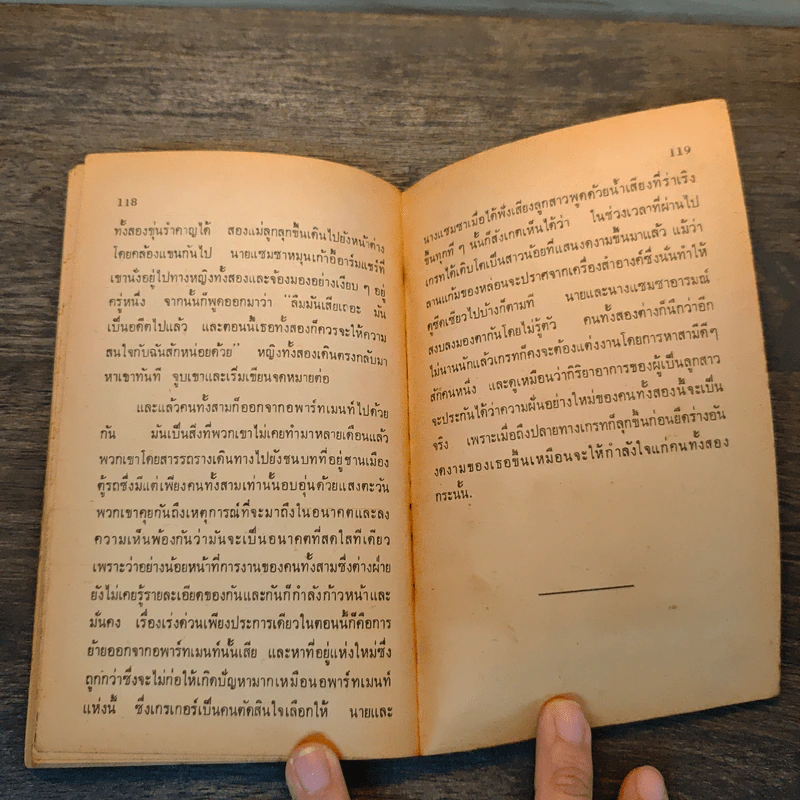 118
ทั้งสองขุ่นรำคาญได้ สองแม่ลูกลุกขึ้นเดินไปยังหน้าต่าง
โดยคล้องแขนกันไป นายแซมซาหมุนเก้าอี้อาร์มแชร์ที่
เขานั่งอยู่ไปทางหญิงทั้งสองและจ้องมองอย่างเงียบ ๆ อยู่
ครู่หนึ่ง จากนั้นก็พูดออกมาว่า “ลืมมันเสียเถอะ มัน
เป็นอดีตไปแล้ว และตอนนี้เธอทั้งสองก็ควรจะให้ความ
สนใจกับฉันสักหน่อยด้วย” หญิงทั้งสองเดินตรงกลับมา
หาเขาทันที จูบเขาและเริ่มเขียนจดหมายต่อ
และแล้วคนทั้งสามก็ออกจากอพาร์ทเมนท์ไปด้วย
กัน มันเป็นสิ่งที่พวกเขาไม่เคยทำมาหลายเดือนแล้ว
พวกเขาโดยสารรถรางเดินทางไปยังชนบทที่อยู่ชานเมือง
ตู้รถซึ่งมีแต่เพียงคนทั้งสามเท่านั้นอบอุ่นด้วยแสงตะวัน
พวกเขาคุยกันถึงเหตุการณ์ที่จะมาถึงในอนาคตและลง
ความเห็นพ้องกันว่ามันจะเป็นอนาคตที่สดใสทีเดียว
เพราะว่าอย่างน้อยหน้าที่การงานของคนทั้งสามซึ่งต่างฝ่าย
ยังไม่เคยรู้รายละเอียดของกันและกันก็กำลังก้าวหน้าและ
มั่นคง เรื่องเร่งด่วนเพียงประการเดียวในตอนนี้ก็คือการ
ย้ายออกจากอพาร์ทเมนท์นั้นเสีย และหาที่อยู่แห่งใหม่ซึ่ง
ถูกกว่าซึ่งจะไม่ก่อให้เกิดปัญหามากเหมือนอพาร์ทเมนท์
แห่งนี้ ซึ่งเกรเกอร์เป็นคนตัดสินใจเลือกให้ นายและ
119
นางแซมซาเมื่อได้ฟังเสียงลูกสาวพูดด้วยน้ำเสียงที่ร่าเริง
ขึ้นทุกที ๆ นั้นก็สังเกตเห็นได้ว่า ในช่วงเวลาที่ผ่านไป
เกรทได้เติบโตเป็นสาวน้อยที่แสนงดงามขึ้นมาแล้ว แม้ว่า
ลานแก้มของหล่อนจะปราศจากเครื่องสำอางค์ซึ่งนั่นทำให้
ดูซีดเซียวไปบ้างก็ตามที นายและนางแซมซาอารมณ์
สงบลงมองตากันโดยไม่รู้ตัว คนทั้งสองต่างก็นึกว่าอีก
ไม่นานนักแล้วเกรทก็คงจะต้องแต่งงานโดยการหาสามีดีๆ
สักคนหนึ่ง และดูเหมือนว่ากิริยาอาการของผู้เป็นลูกสาว
จะประกันได้ว่าความฝันอย่างใหม่ของคนทั้งสองนี้จะเป็น
จริง เพราะเมื่อถึงปลายทางเกรทก็ลุกขึ้นก่อนยืดร่างอัน
งดงามของเธอขึ้นเหมือนจะให้กำลังใจแก่คนทั้งสอง
กระนั้น.